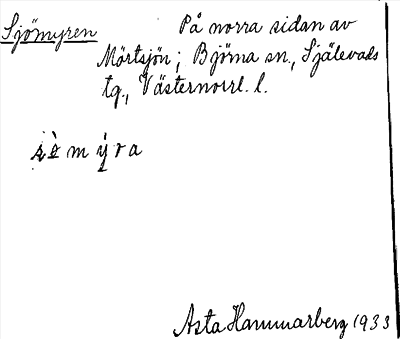 Sjömyren På norra sidan av
Mörtsjön; Björna sn., Själevads
tg., Västernorrl. l.
Asta Hammarberg 1933